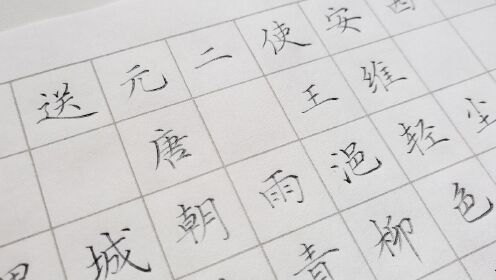 送元二使安西
唐 王维
城朝雨浥轻尘
青柳色